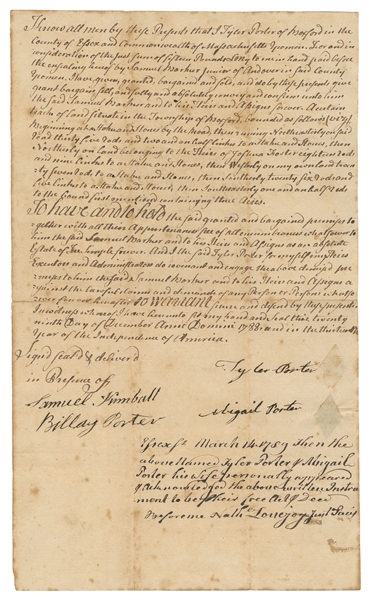 Know all men by these Presents that I Tyler Porter of Boxford in the
County of Essex and Commonwealth of Massachusetts Yeoman. For and in
consideration of the just sum of fifteen Pounds to me in hand paid before
the ensealing hereof by Samuel Barker Junior of Andover in said County
Yeoman, Have given, granted, bargained and sold, and do by these presents give
grant bargain sell, and fully and absolutely convey and confirm unto him
the said Samuel Barker and to his Heirs and Assigns forever. A certain
of land situate in the Township of Boxford, bounded as follows (viz)
Beginning at a Stake and Stones by the Road, then runing Northeasterly on said
Road thirty five rods and two and an half links to a stake and stones, then
Northerly on Land belonging to the Heirs of Joshua eighteen rods
and nine links to a stake and stones, then Westerly on my own land
seven rods to a stake and stones, then Southerly twenty six rods and
five links to a stake and stones, then Southeasterly one and an half rods
to the bound first mentioned containing three Acres.
To have and to hold the said granted and bargained premises to
gether with all their Appurtenances free of all incumbrances whatsoever to
him the said Samuel Barker and to his Heirs and Assigns as an absolute
Estate of Fee Simple forever. And I the said Tyler Porter for myself my Heirs
Executors and Administrators do covenant and engage the above demised pre
mises to him the said Samuel Barker and to his Heirs and Assigns
against the lawful claims and demands of any Person or Persons whatso
ever forever hereafter to warrant secure and defend by these presents.
In witness whereof I have hereunto set my hand and seal this twenty
ninth Day of December Anno Domini 1788 and in the thirteenth
Year of the Independence of America.
Signd seald & deliverd
in Presence off
Tyler Porter
Samuel Kimball
Billay Porter
Abigail Porter
Essex Ss March 14 1789 Then the
above Named Tyler Porter & Abigail
Porter his Wife personally appeared
& Acknowledged the above written Instru
ment to be their free Act & Deed
Before me Nathl. Lovejoy Just Pacis